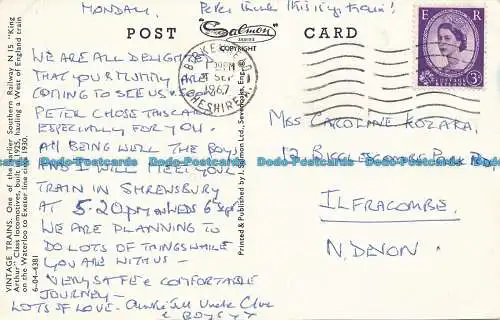 MONDAY. Peter thinks this is my train!
POST "Salmon" CARD
SERIES
COPYRIGHT
BIRKENHEAD
SEP
1967
CHESHIRE
E R
3D
WE ARE ALL DELIGHTED
THAT YOUR MUMMY ARE
COMING TO SEE US SOON
PETER CHOSE THIS CARD
ESPECIALLY FOR YOU.
All BEING WELL THE BOYS
AND I WILL MEET YOUR
TRAIN IN SHREWSBURY
AT 5.20pm ON WEDS 6 Sept
WE ARE PLANNING TO
DO LOTS OF THINGS WHILE
YOU ARE WITH US -
VERY SAFE & COMFORTABLE
JOURNEY -
LOTS OF LOVE. Auntie Jill Uncle Clive
& BOYS
MISS CAROLINE KOZARA,
PARK ROAD
ILFRACOMBE.
N. DEVON.
VINTAGE TRAINS. One of the earlier Southern Railway N 15. "King
Arthur" Class locomotives, built in 1925, hauling a West of England train
on the Waterloo to Exeter line circa 1930.
6-04-4381
Printed & Published by J. Salmon Ltd., Sevenoaks, Eng. ©
Dodo-Postcards Dodo-Postcards Dodo-Postcards Dodo-Postcards Dodo-Postcards